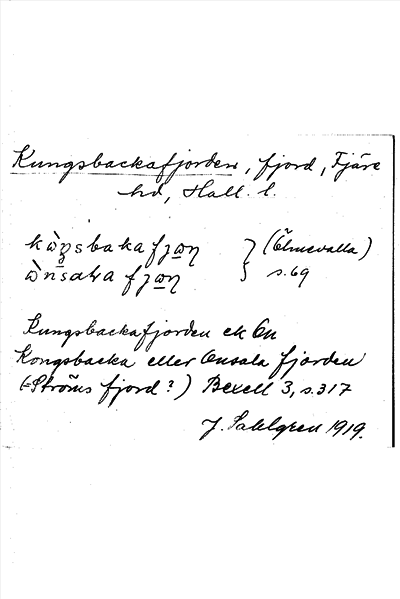 Kungsbackafjorden, fjord, Fjäre
hd, Hall. l.
kὼŋsbakafjωn } (Ölmevalla)
ὼnsaɬa fjωn } s. 69
Kungsbackafjorden
Kongsbacka eller Onsala fjorden
(=Ströms fjord?) Bexell 3, s. 317
J. Sahlgren 1919.